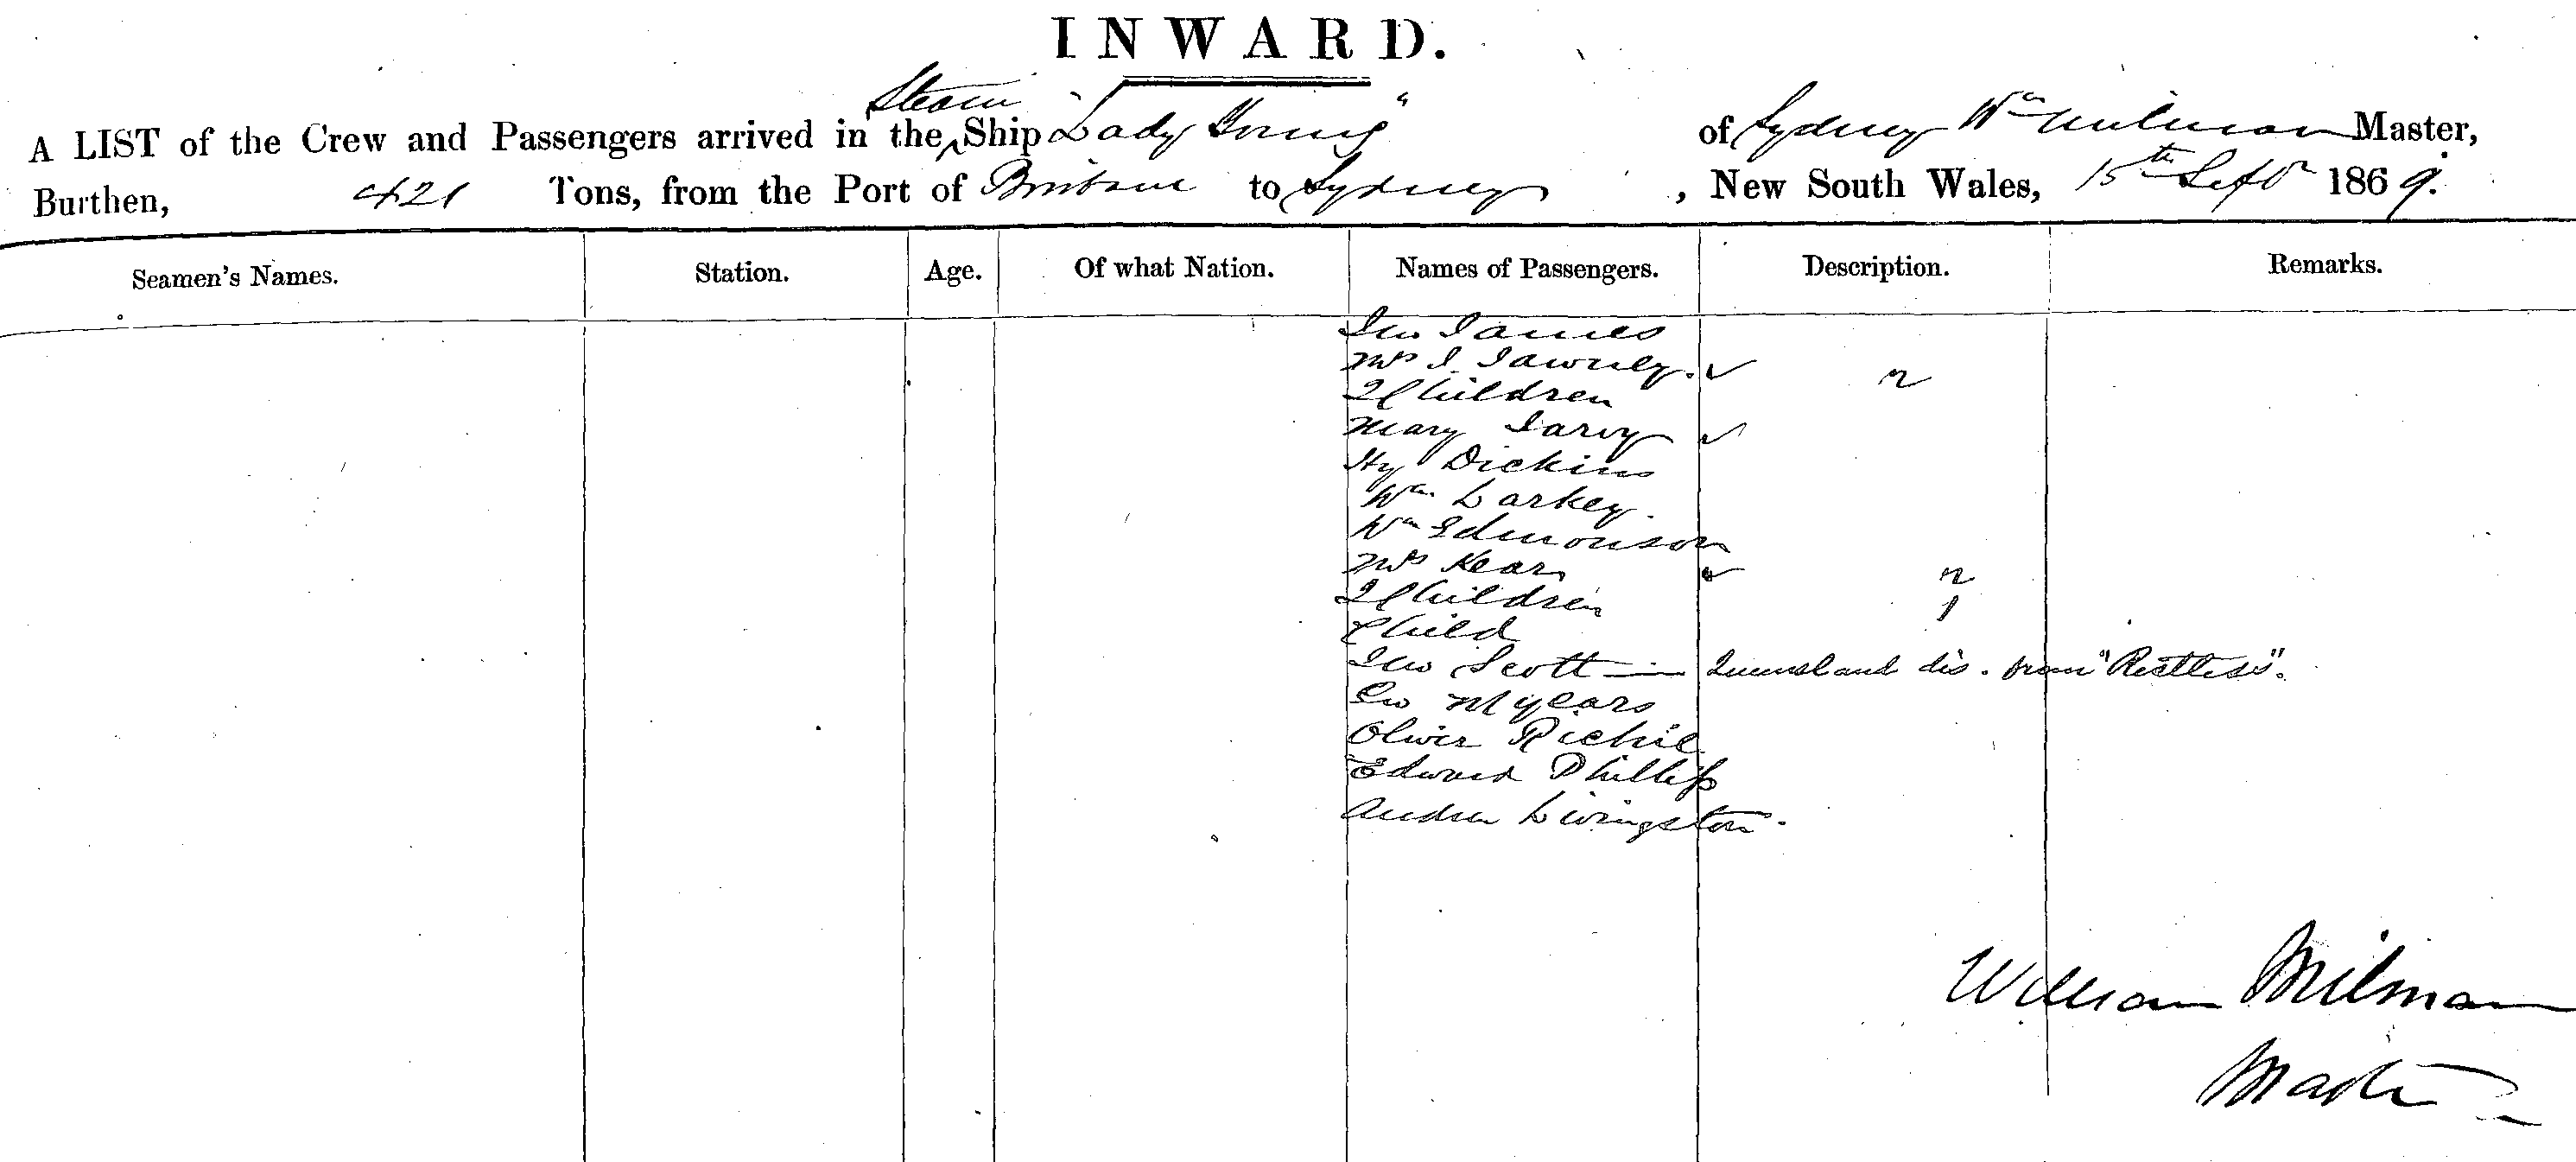 INWARD.
Steam
A LIST of the Crew and Passengers arrived in the Ship "Lady Young" of Sydney Wm Milman Master,
Burthen, 421 Tons, from the Port of Brisbane to Sydney, New South Wales, 15th Septr 1869.
Seamen's Names. Station. Age. Of what Nation. Names of Passengers. Description. Remarks.
Jno James
Mrs J.
2 Children 2
Mary
Hy Dickins
Wm Larkey.
Wm Edmonson
Mrs Kear 2
2 Children 1
Child
Jno Scott — Queensland dis. from "Restless".
Geo Myears
Oliver Richie
Edward Phillips
Andrew Livingston.
William Milman
Master